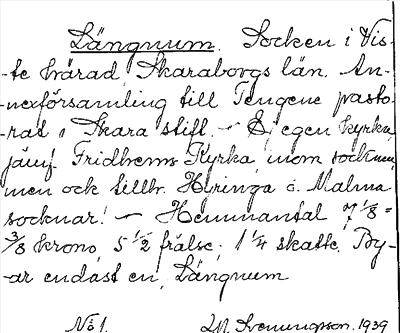 Längnum. Socken i Vis-
-te härad, Skaraborgs län. An-
-nexförsamling till Tengene pasto-
rat i Skara stift. – Ej egen kyrka,
jämf. Fridhems Kyrka, inom socknen,
men ock tillhr. Hyringa o. Malma
socknar! – Hemmantal 7 1/8 =
3/8 krono, 5 1/2 frälse, 1 1/4 skatte. By-
-ar endast en, Längnum
No 1. Svenungsson. 1939